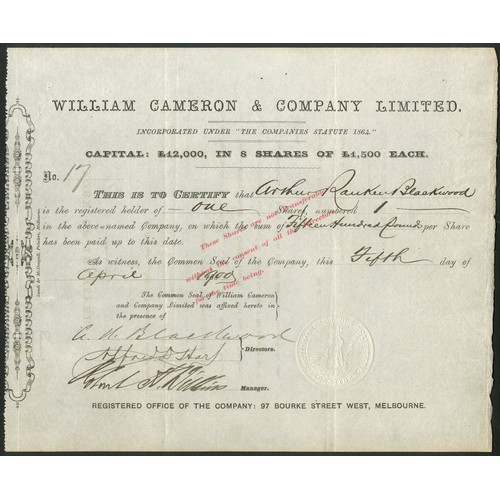 WILLIAM CAMERON & COMPANY LIMITED.
INCORPORATED UNDER "THE COMPANIES STATUTE 1864."
CAPITAL: £12,000, IN 8 SHARES OF £1,500 EACH.
No. 17
THIS IS TO CERTIFY that Arthur Ranken Blackwood
is the registered holder of one Share, numbered 1
in the above-named Company, on which the sum of Fifteen Hundred Pounds per Share
has been paid up to this date.
These Shares are not Transferable
without the consent of all the Directors
for the time being.
As witness, the Common Seal of the Company, this Fifth day of
April 1900
The Common Seal of William Cameron
and Company Limited was affixed hereto in
the presence of
A. R. Blackwood
Alfred Harf
Directors.
Manager.
REGISTERED OFFICE OF THE COMPANY: 97 BOURKE STREET WEST, MELBOURNE.